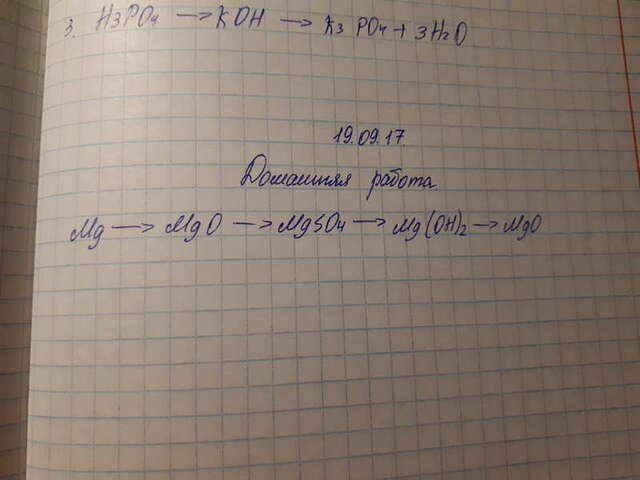 3. H3PO4 → KOH → K3PO4 + 3H2O
19.09.17
Домашняя работа.
Mg → MgO → MgSO4 → Mg(OH)2 → MgO